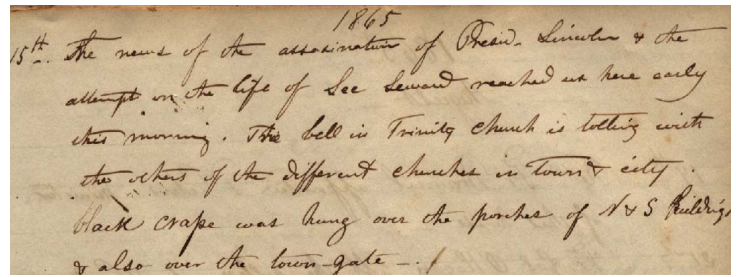 1865
15th. The news of the assasination of Presid. Lincoln & the
attempt on the life of Sec Seward reached us here early
this morning. The bell in Trinity church is tolling with
the others of the different churches in town & city.
black crape was hung over the porches of N & S Buildings
& also over the town-gate -.